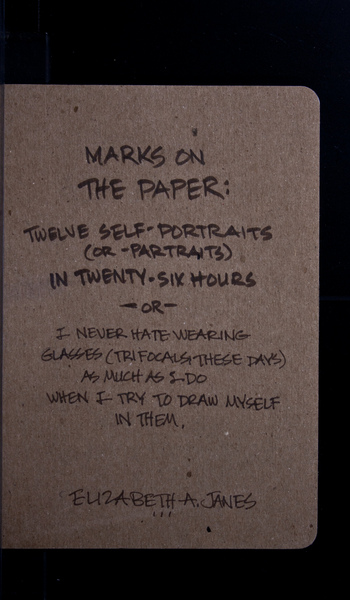 MARKS ON
THE PAPER:
TWELVE SELF-PORTRAITS
(OR -PARTRAITS)
IN TWENTY-SIX HOURS
-OR-
I NEVER HATE WEARING
GLASSES (TRIFOCALS-THESE DAYS)
AS MUCH AS I DO
WHEN I TRY TO DRAW MYSELF
IN THEM.
ELIZABETH A. JANES